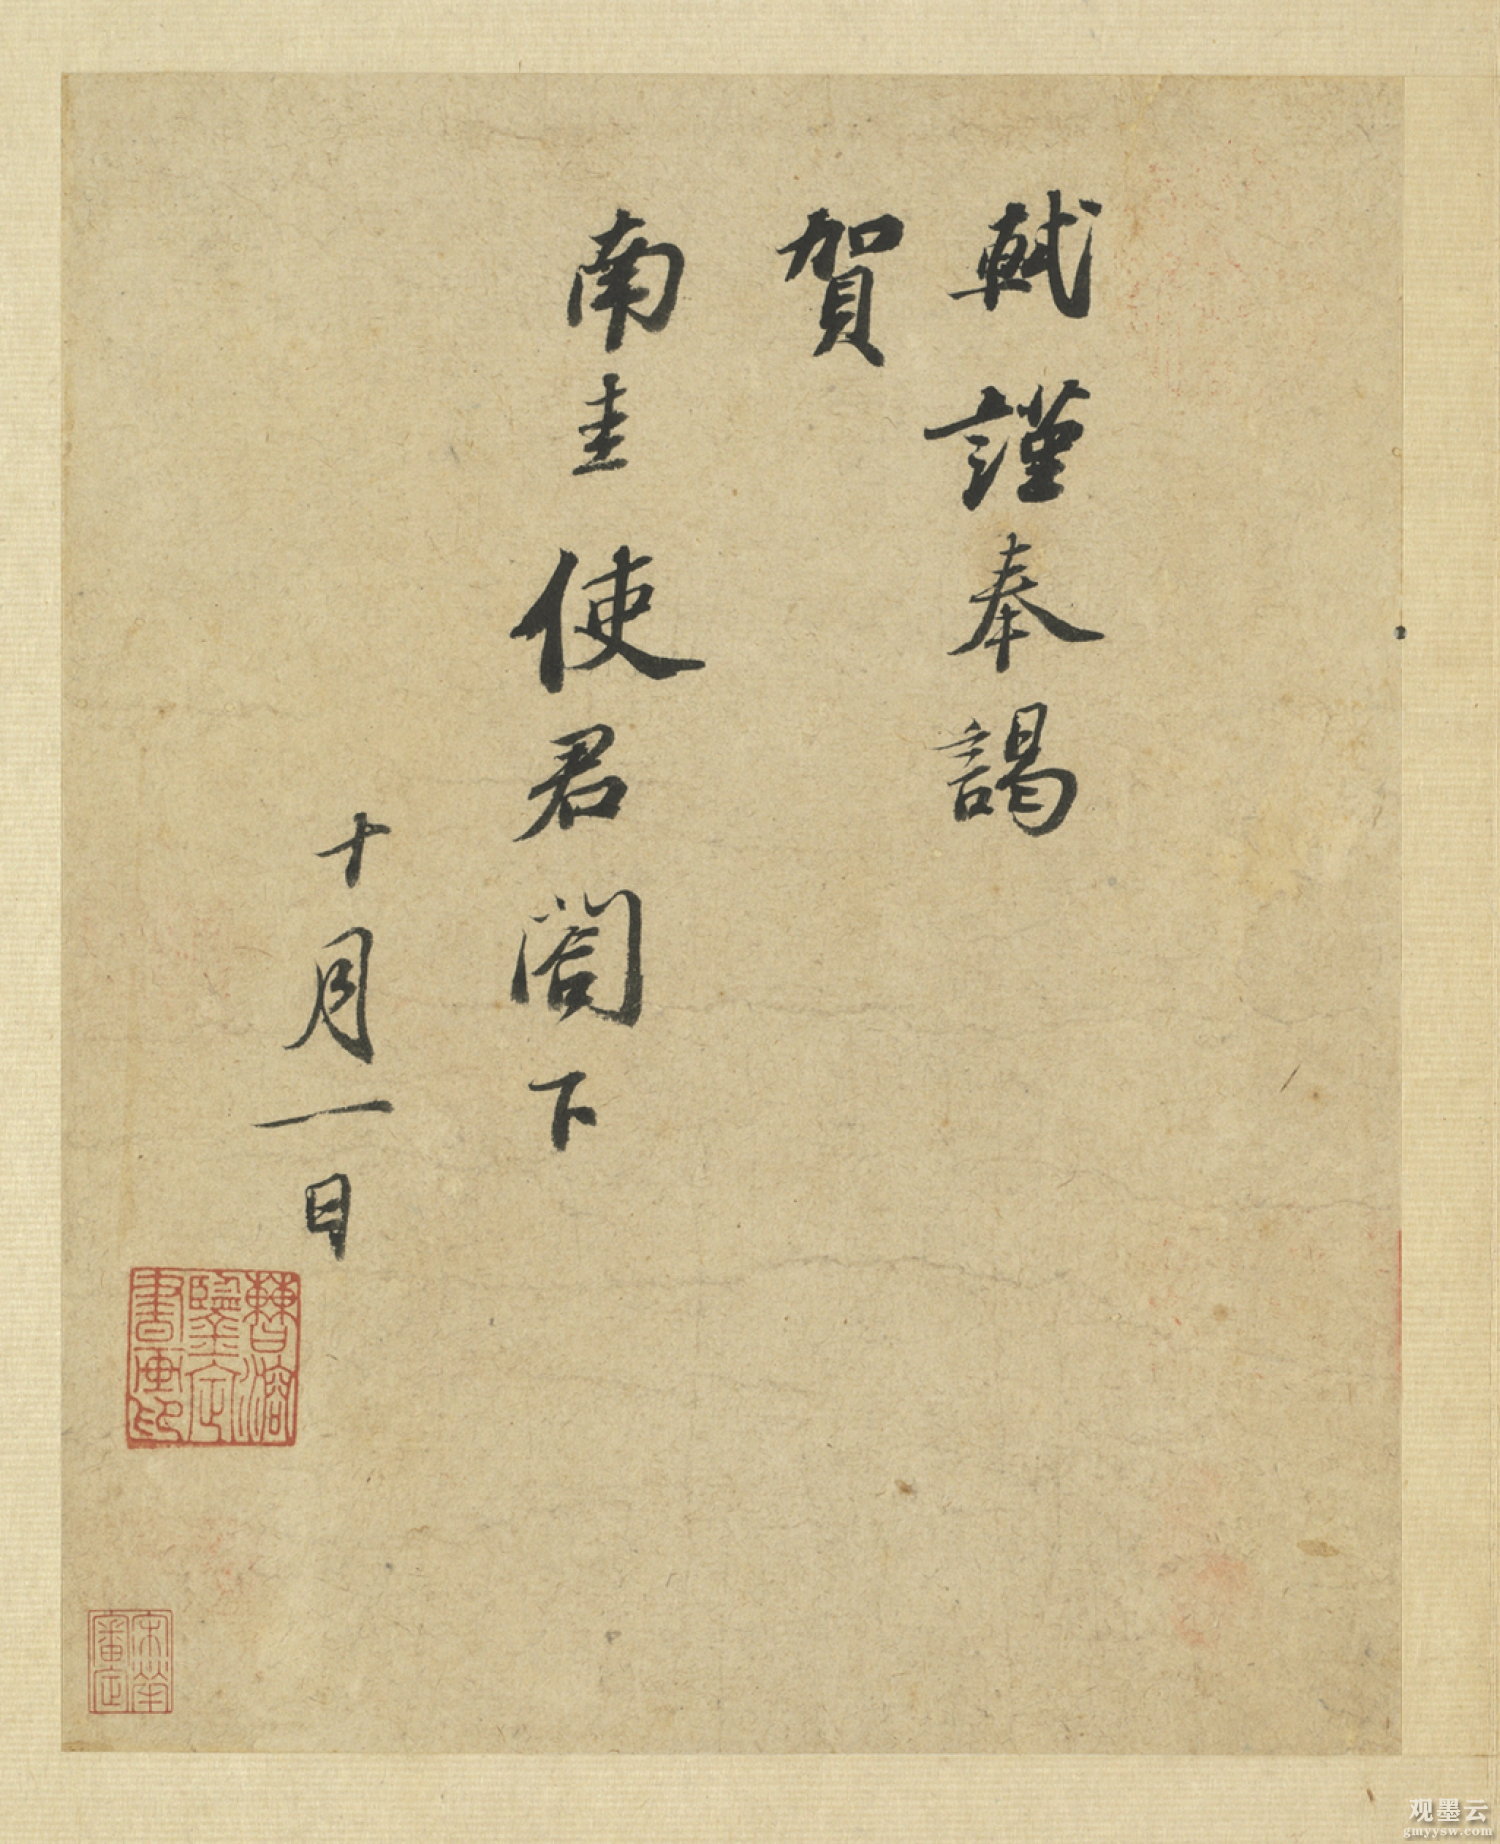 軾謹奉謁
賀
南圭使君閤下
十月一日
曹溶
鑒定
書畫印
宋犖
審定
观墨云
gmyysw.com